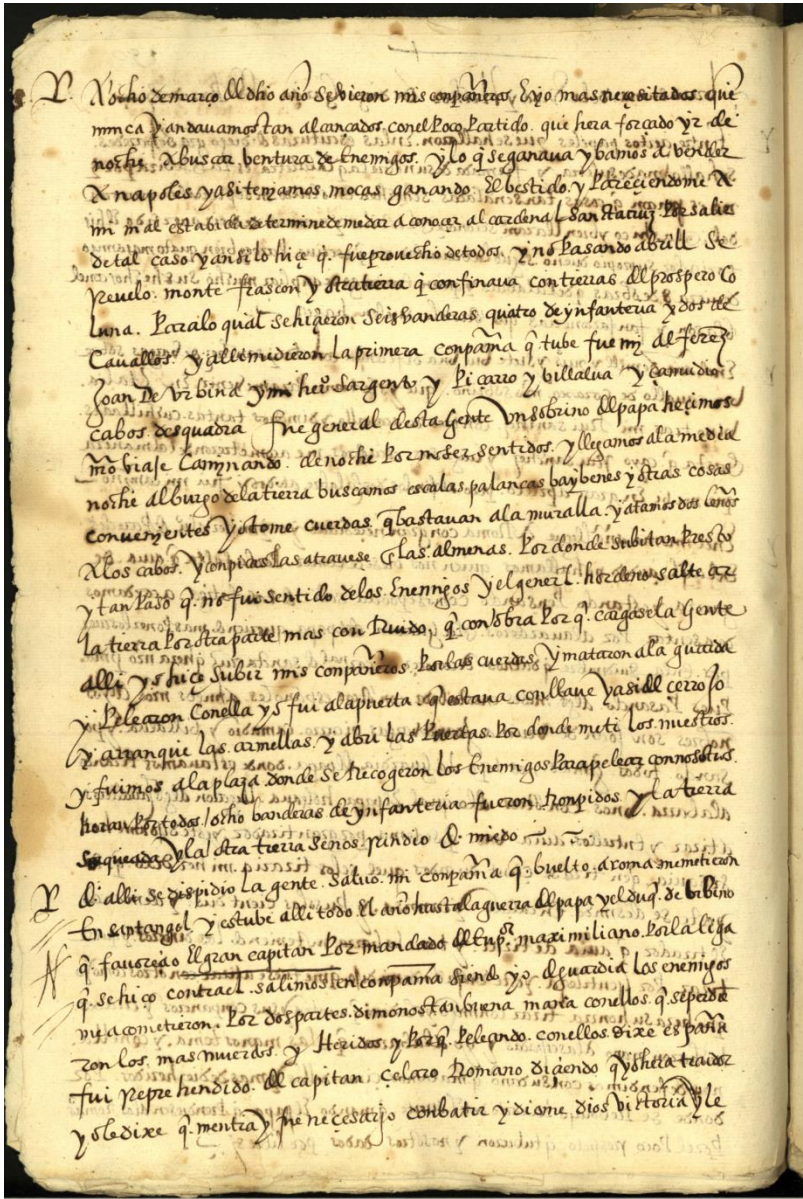 A ocho de março del dho año se vieron mis conpañeros E yo mas neçesitados que
nunca y andavamos tan alcançados con el Poco Partido que hera forçado yr de
noche A buscar ventura de Enemigos. y lo q se ganava ybamos a vender
A napoles y asi teniamos moças ganando El bestido. y Pareciendome A
mi mal esta bida determine de me dar a conoçer al cardenal Sancta cruz Por salir
de tal caso y ansi lo hiçe q. fue provecho de todos. y no Pasando abrill Se
Revelo. monte frascon y otra tierra q confinava con tierras del prospero Co
luna. Para lo qual se hiçieron Seis vanderas quatro de ynfanteria y dos de
Cavallos. y alli me dieron la primera conpañia q tube fue mi alferez
Joan De Urbina y mi herº Sargento y Piçarro y villalva y çamudio
cabos desquadra fue general desta Gente un sobrino del papa heçimos
nrõ viaje Caminando. de noche Por no ser sentidos. y llegamos a la media
noche al burgo de la tierra buscamos escalas palancas baybenes y otras cosas
convenientes yo tome cuerdas q bastavan a la muralla. y atamos dos leños
A los cabos. y con picas las atravese las almenas. Por donde Subi tan Presto
y tan Paso q. no fui sentido de los Enemigos y el generl. hordeno saltear
la tierra Por otra parte mas con Ruido q con obra Por q. cargase la Gente
alli yo hiçe Subir mis conpañeros. Por las cuerdas. y mataron a la guardia
y Pelearon Con ella yo fui a la puerta q estava con llave y asi del çerrojo
y arranque las armellas. y abri las Puertas. Por donde meti los nuestros.
y fuimos a la plaça donde se Recogeron los Enemigos Para pelear con nosotros
heran Por todos ocho banderas de ynfanteria fueron Ronpidos y la tierra
Saqueada y la otra tierra Se nos Rindio de miedo
de alli se dispidio la gente. Salvo. mi conpañia q. buelto. a roma me metieron
En santangel y estube alli todo El año hasta la guerra del papa y el duq. de Urbino
q. favoreçio El gran capitan Por mandado del Enpor maximiliano. Por la liga
q. se hiço contra el. salimos en conpañia siendo yo. de guardia los enemigos
me acometieron. Por dos partes. dimonos tan buena maña con ellos. q. se perdie
ron los. mas muertos. y Heridos y Por q. Peleando. con ellos. dixe españa
fui Reprehendido. del capitan çesaro Romano diçiendo q yo hera traidor
yo le dixe q. mentia y fue neçesario conbatir y diome dios victoria y le